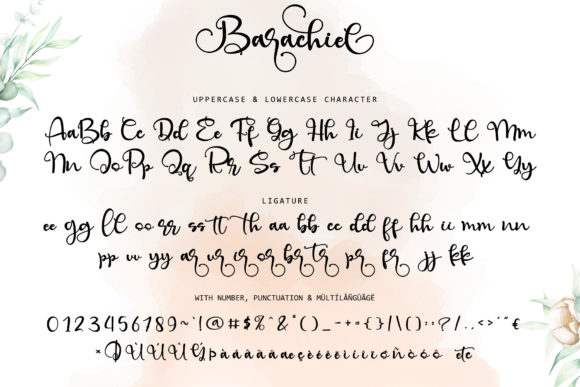 Barachiel
UPPERCASE & LOWERCASE CHARACTER
AaBb Cc Dd Ee Ff Gg Hh Ii Jj Kk Ll Mm
Nn OoPp Qq Rr Ss Tt Uu Vv Ww Xx Yy
LIGATURE
ee gg ll oo rr ss tt th aa bb cc dd ff hh ii mm nn
pp uu yy ar ur ir or br tr pr fr jj kk
WITH NUMBER, PUNCTUATION & MÜLTÍLÂÑGÛÀGÉ
0123456789~`!@#$%^&*()_-+={}/|\():;?/.,<>'"€